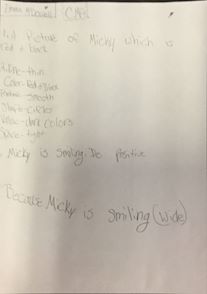 Picture of Micky which is
red + black
Line-thin
Color-Red+Black
smooth
Shape-circles
Value-dark colors
Micky is Smiling. So Positive
Because Micky is smiling (wide)